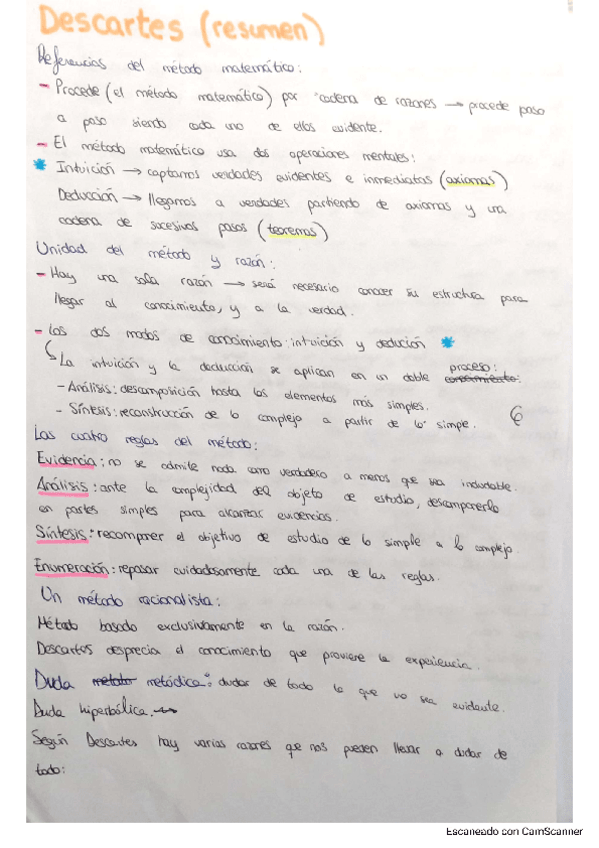 Descartes (resumen)
Referencias del método matemático:
- Procede (el método matemático) por "cadena de razones → procede paso
a paso siendo cada uno de ellos evidente.
- El método matemático usa dos operaciones mentales:
* Intuición → captamos verdades evidentes e inmediatas (axiomas)
Deducción → llegamos a verdades partiendo de axiomas y una
cadena de sucesivos pasos (teoremas)
Unidad del método y razón:
- Hay una sola razón → será necesario conocer su estructura para
llegar al conocimiento, y a la verdad.
- Los dos modos de conocimiento: intuición y dedución *
La intuición y la deducción se aplican en un doble proceso:
- Análisis: descomposición hasta los elementos más simples.
- Síntesis: reconstrucción de lo complejo a partir de lo simple.
Las cuatro reglas del método:
Evidencia: no se admite nada como verdadero a menos que sea indudable.
Análisis: ante la complejidad del objeto de estudio, descomponerlo
en partes simples para alcanzar evidencias.
Síntesis: recomponer el objetivo de estudio de lo simple a lo complejo.
Enumeración: repasar cuidadosamente cada una de las reglas.
Un método racionalista:
Método basado exclusivamente en la razón.
Descartes desprecia el conocimiento que proviene la experiencia.
Duda metódica: dudar de todo lo que no sea evidente.
Duda hiperbólica.
Según Descartes hay varias razones que nos pueden llevar a dudar de
todo:
Escaneado con CamScanner